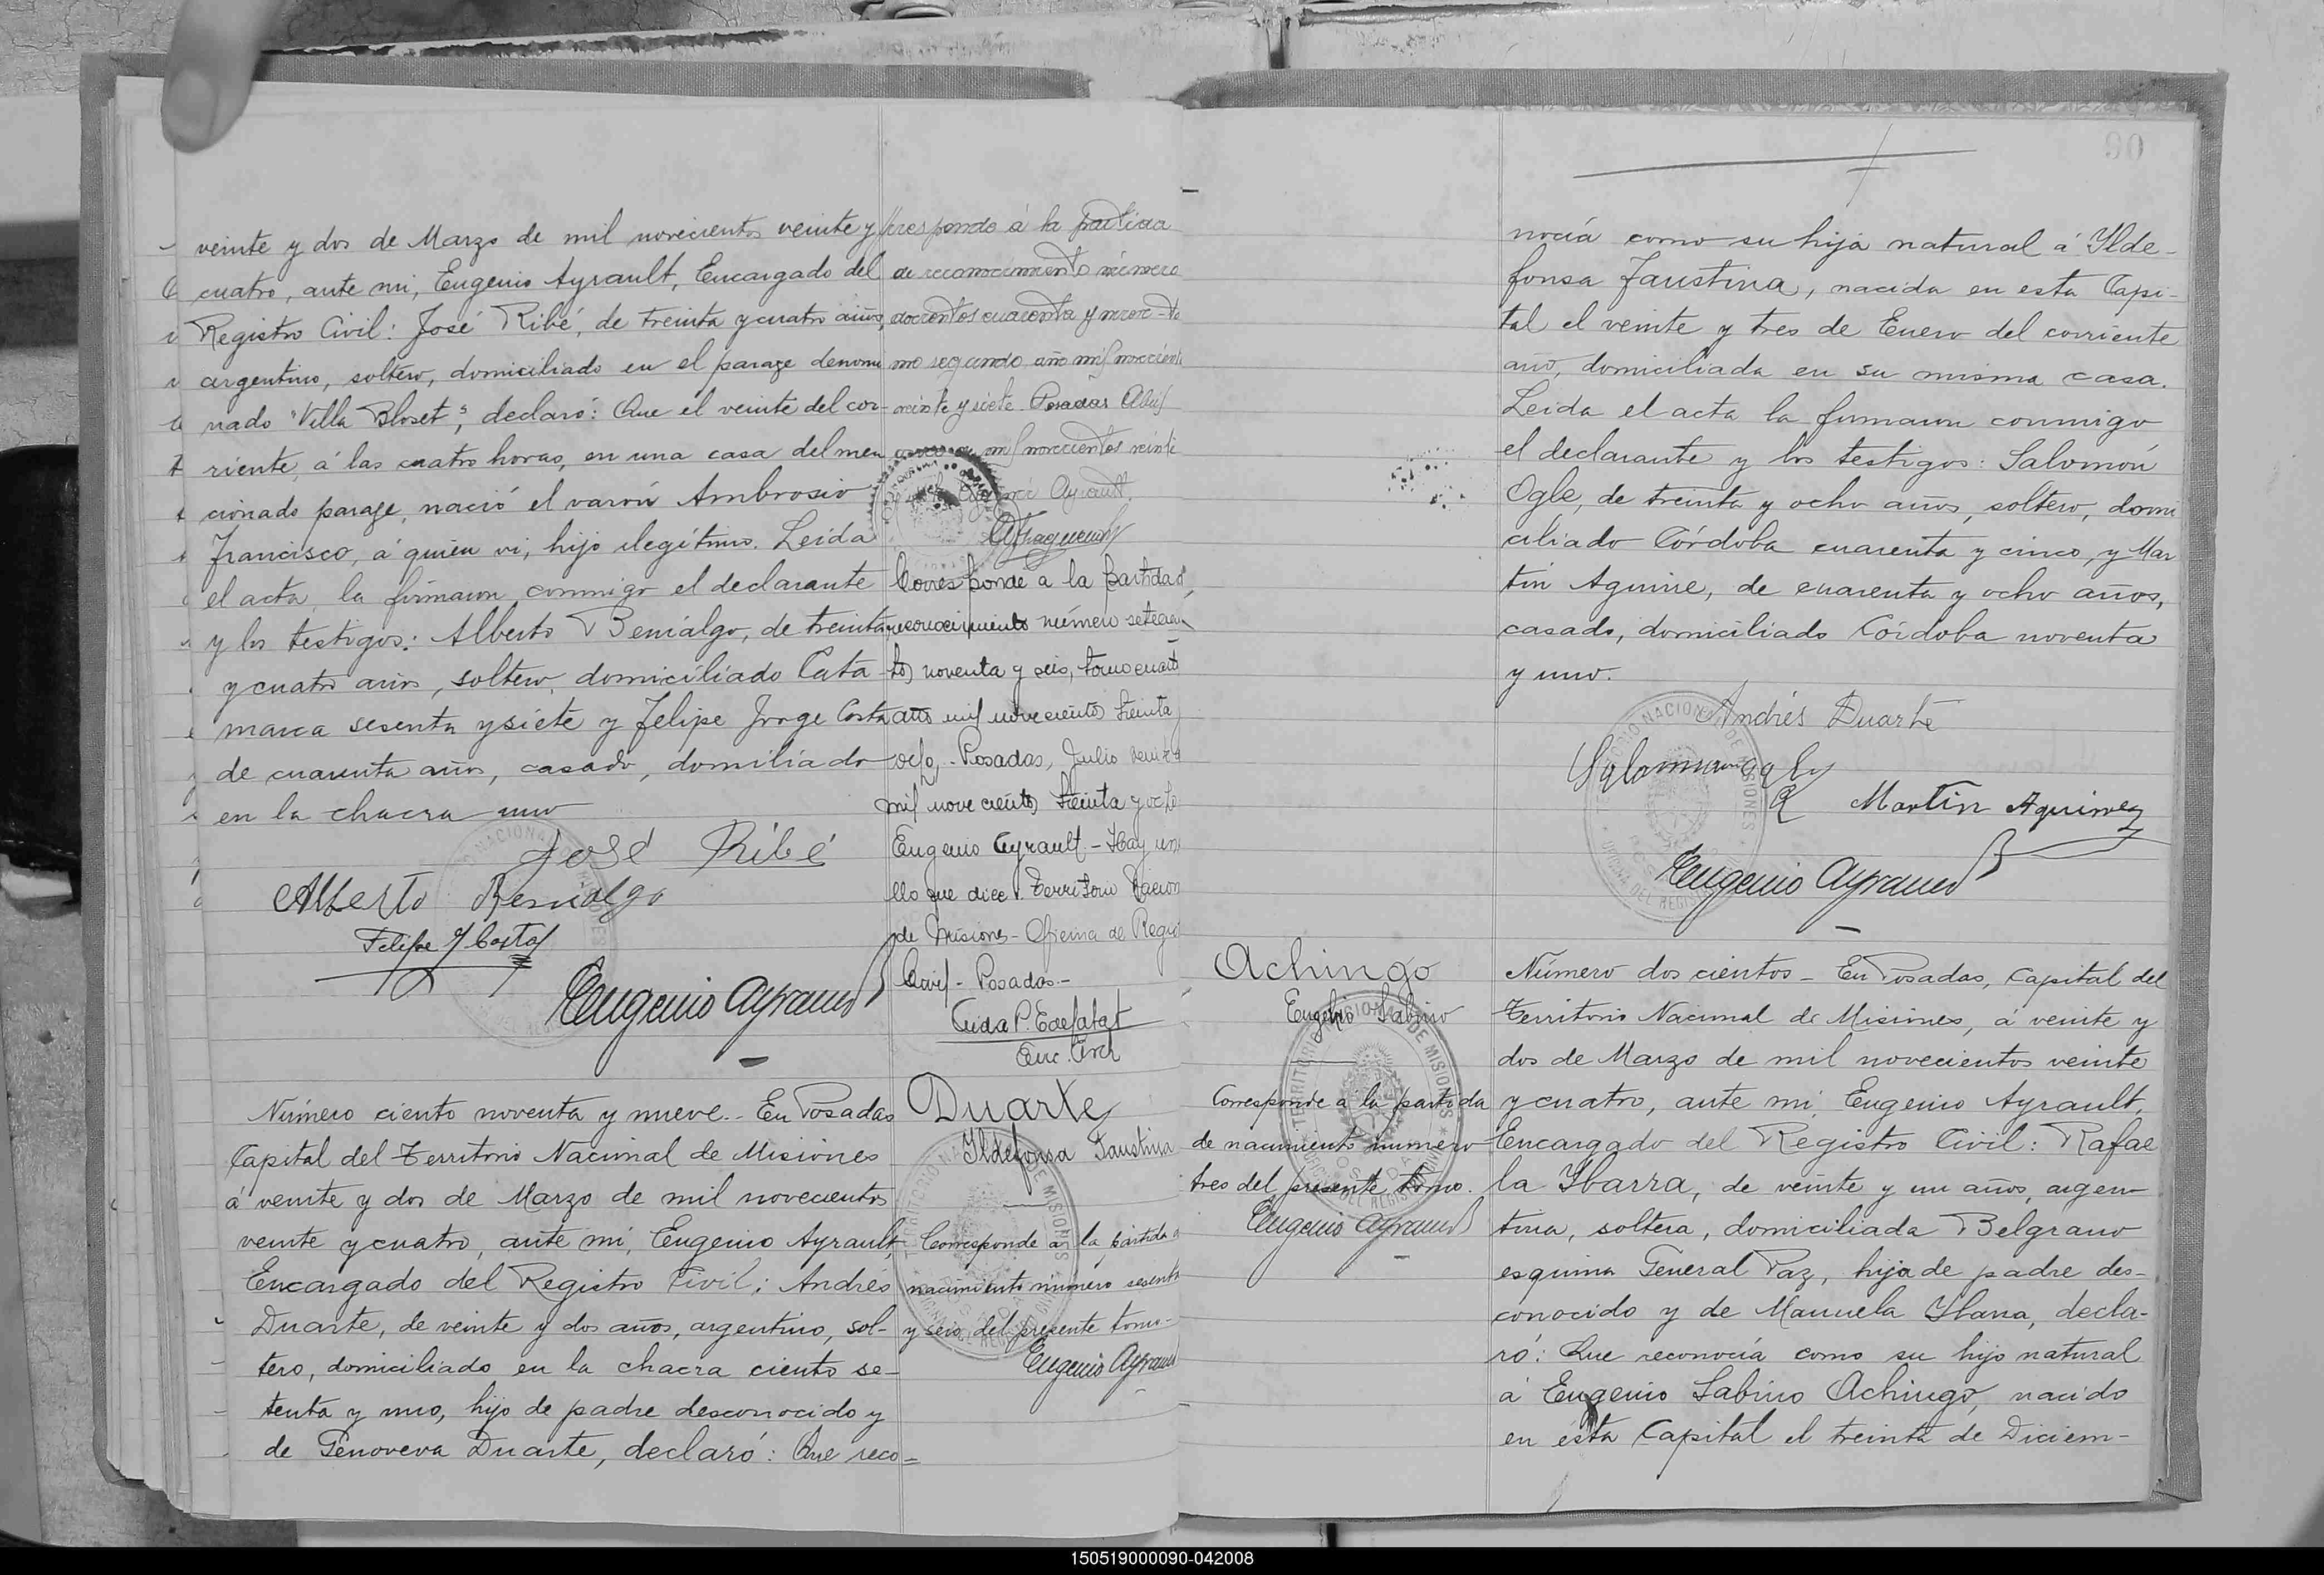 veinte y dos de Marzo de mil novecientos veinte y
cuatro, ante mi, Eugenio Ayrault, Encargado del
Registro Civil: José Ribé, de treinta y cuatro años,
argentino, soltero, domiciliado en el paraje denomi
nado "Villa Bloset", declaró: Que el veinte del cor-
riente, á las cuatro horas, en una casa del men
cionado paraje, nació el varón Ambrosio
Francisco, á quien vi, hijo ilegítimo. Leida
el acta, la firmaron conmigo el declarante
y los testigos: Alberto Benialgo, de treinta
y cuatro años, soltero, domiciliado Cata
marca sesenta y siete y Felipe Jorge Costa
de cuarenta años, casado, domiliado
en la chacra uno
José Ribé
Alberto Benialgo
Felipe J Costa
Eugenio Ayrault
responde á la partida
de reconocimiento número
doscientos cuarenta y nueve - to
mo segundo año mil novecientos
veinte y siete. Posadas Abril
mil novecientos veinti
Ayrault.
Corresponde a la partida d
reconocimiento número setecien
tos noventa y seis, tomo cuarto
año mil novecientos treinta y
ocho. - Posadas, Julio
mil novecientos treinta y ocho
Eugenio Ayrault - Hay un
llo que dice: Territorio Nacion
de Misiones - Oficina de Regis
Civil - Posadas -
Enc. Arch
Número ciento noventa y nueve. - En Posadas
Capital del Territorio Nacional de Misiones
á veinte y dos de Marzo de mil novecientos
veinte y cuatro, ante mi, Eugenio Ayrault,
Encargado del Registro Civil: Andrés
Duarte, de veinte y dos años, argentino, sol-
tero, domiciliado en la chacra ciento se-
tenta y uno, hijo de padre desconocido y
de Genoveva Duarte, declaró: Que reco-
Duarte
Ildefonsa Faustina
Corresponde a la partida d
nacimiento número sesenta
y seis del presente tomo -
Eugenio Ayrault
90
nocía como su hija natural á Ylde-
fonsa Faustina, nacida en esta Capi-
tal el veinte y tres de Enero del corriente
año, domiciliada en su misma casa.
Leida el acta la firmaron conmigo
el declarante y los testigos: Salomón
Ogle, de treinta y ocho años, soltero, domi
ciliado Córdoba cuarenta y cinco, y Mar
tín Aguirre, de cuarenta y ocho años,
casado, domiciliado Córdoba noventa
y uno.
Andrés Duarte
Salomon Ogle
Martin Aguirrez
Eugenio Ayrault
Achingo
Eugenio Sabino
Corresponde á la partida
de nacimiento número
tres del presente tomo.
Eugenio Ayrault
Número dos cientos - En Posadas, Capital del
Territorio Nacional de Misiones, á veinte y
dos de Marzo de mil novecientos veinte
y cuatro, ante mi, Eugenio Ayrault,
Encargado del Registro Civil: Rafae
la Ybarra, de veinte y un años, argen
tina, soltera, domiciliada Belgrano
esquina General Paz, hija de padre des-
conocido y de Manuela Ybarra, decla-
ró: Que reconocía como su hijo natural
á Eugenio Sabino Achingo, nacido
en ésta Capital el treinta de Diciem-
150519000090-042008